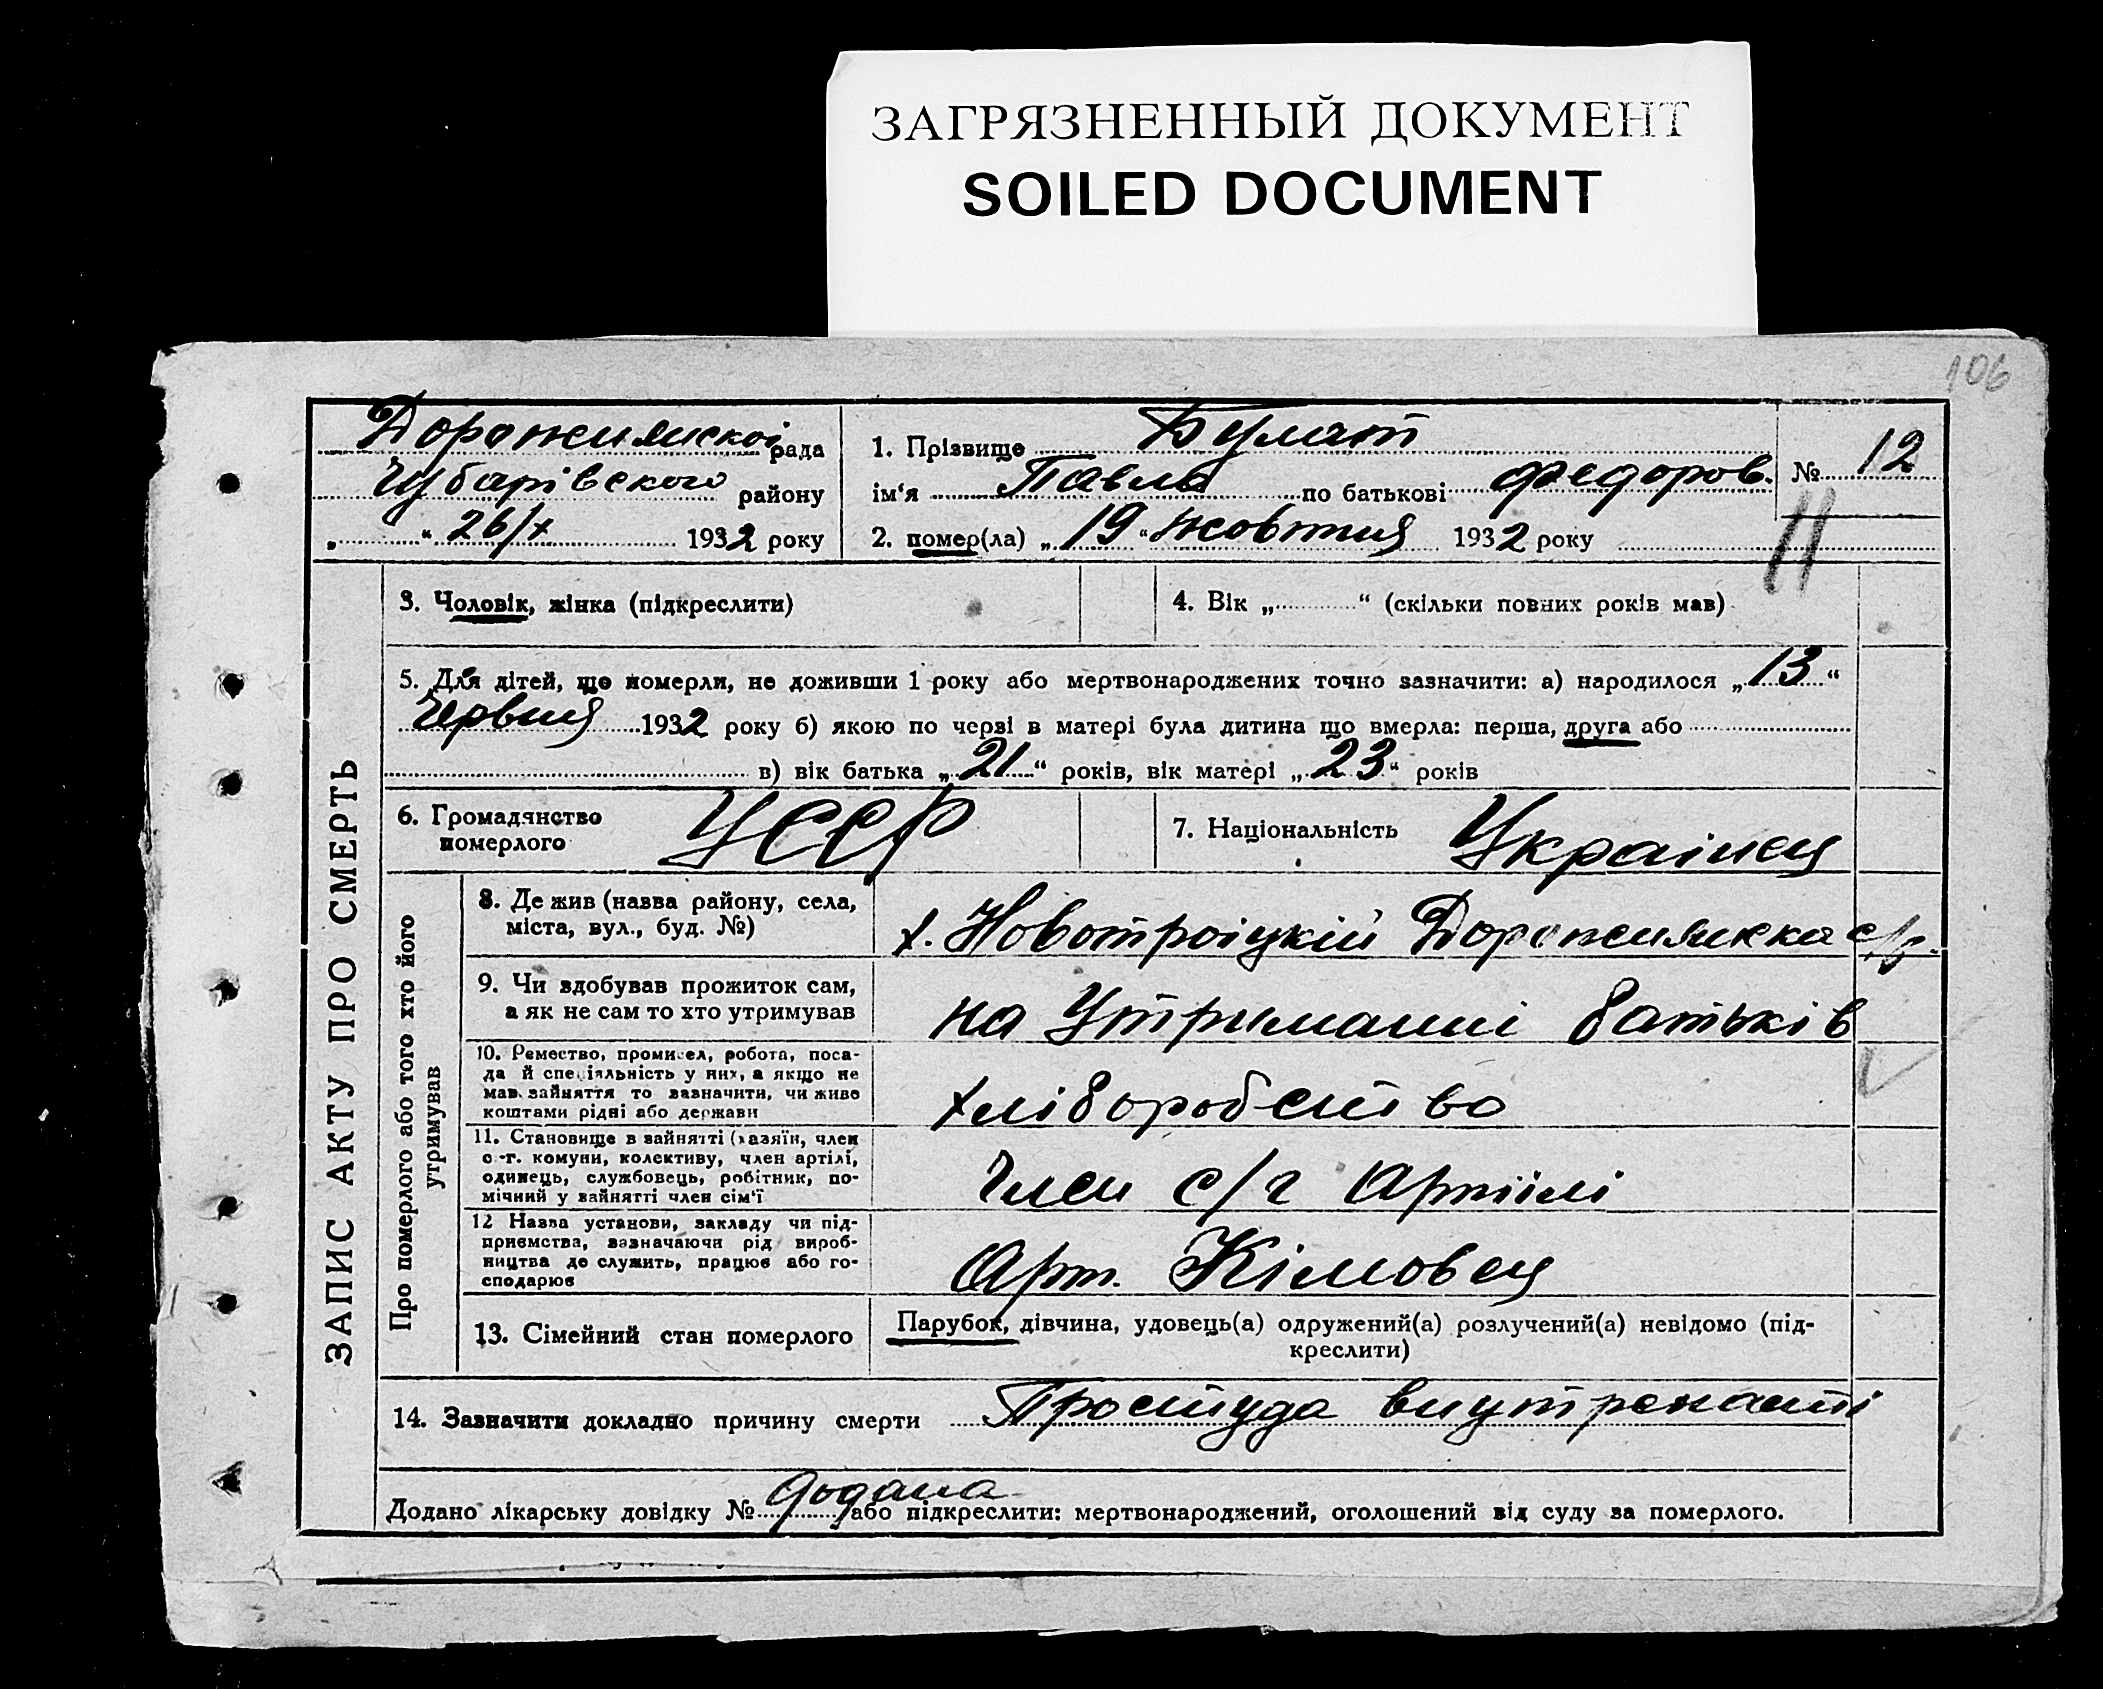 ЗАГРЯЗНЕННЫЙ ДОКУМЕНТ
SOILED DOCUMENT
106
Дорожнянскої рада
Чубарівського району
„ “ 26/X 1932 року
1. Прізвище Булат
ім‘я Павло по батькові Федоров.
2. помер(ла) „19“ жовтня 1932 року
№ 12
11
ЗАПИС АКТУ ПРО СМЕРТЬ
3. Чоловік, жінка (підкреслити)
4. Вік „ “ (скільки повних років мав)
5. Для дітей, що померли, не доживши 1 року або мертвонароджених точно зазначити: а) народилося „13“
Червня 1932 року б) якою по черзі в матері була дитина що вмерла: перша, друга або
в) вік батька „21“ років, вік матері „23“ років
6. Громадянство
померлого
УССР
7. Національність Украінец
Про померлого або того хто його
утримував
8. Де жив (назва району, села,
міста, вул., буд. №)
х. Новотроіцкій Дорожнянска с/р.
9. Чи здобував прожиток сам,
а як не сам то хто утримував
на Утриманні батьків
10. Ремество, промисел, робота, поса-
да й спеціяльність у них, а якщо не
мав зайняття то зазначити, чи живе
коштами рідні або держави
хліборобство
11. Становище в зайнятті (хазяїн, член
с.-г. комуни, колективу, член артілі,
одинець, службовець, робітник, по-
мічний у зайнятті член сім‘ї
Член с/г Артілі
12 Назва установи, закладу чи під-
приємства, зазначаючи рід вироб-
ництва де служить, працює або го-
сподарює
Арт. Кімовец
13. Сімейний стан померлого
Парубок, дівчина, удовець(а) одружений(а) розлучений(а) невідомо (під-
креслити)
14. Зазначити докладно причину смерти Простуда
Додано лікарську довідку № додана або підкреслити: мертвонароджений, оголошений від суду за померлого.